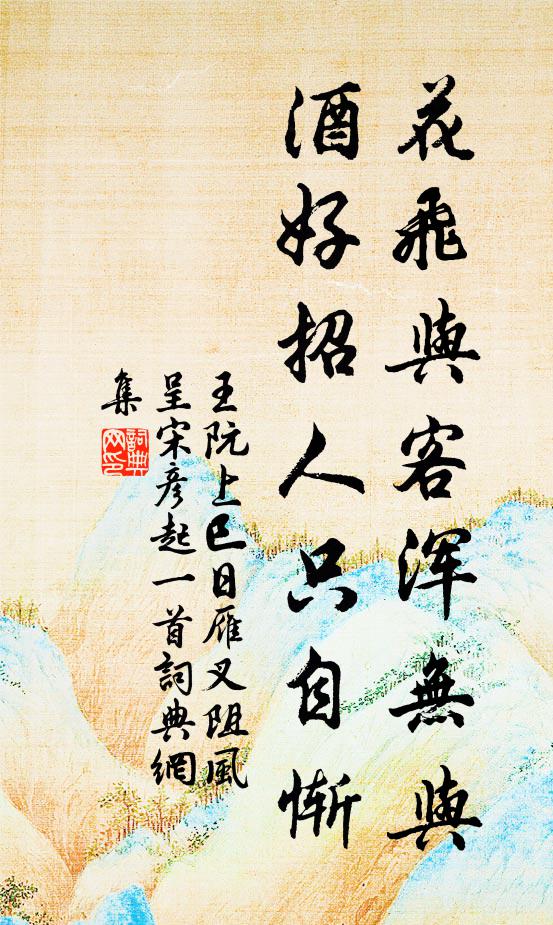 花飛與客渾無與
酒好招人只自慚
王阮上巳日雁叉阻風
呈宋彥起一首詞典網
集
詞典网印